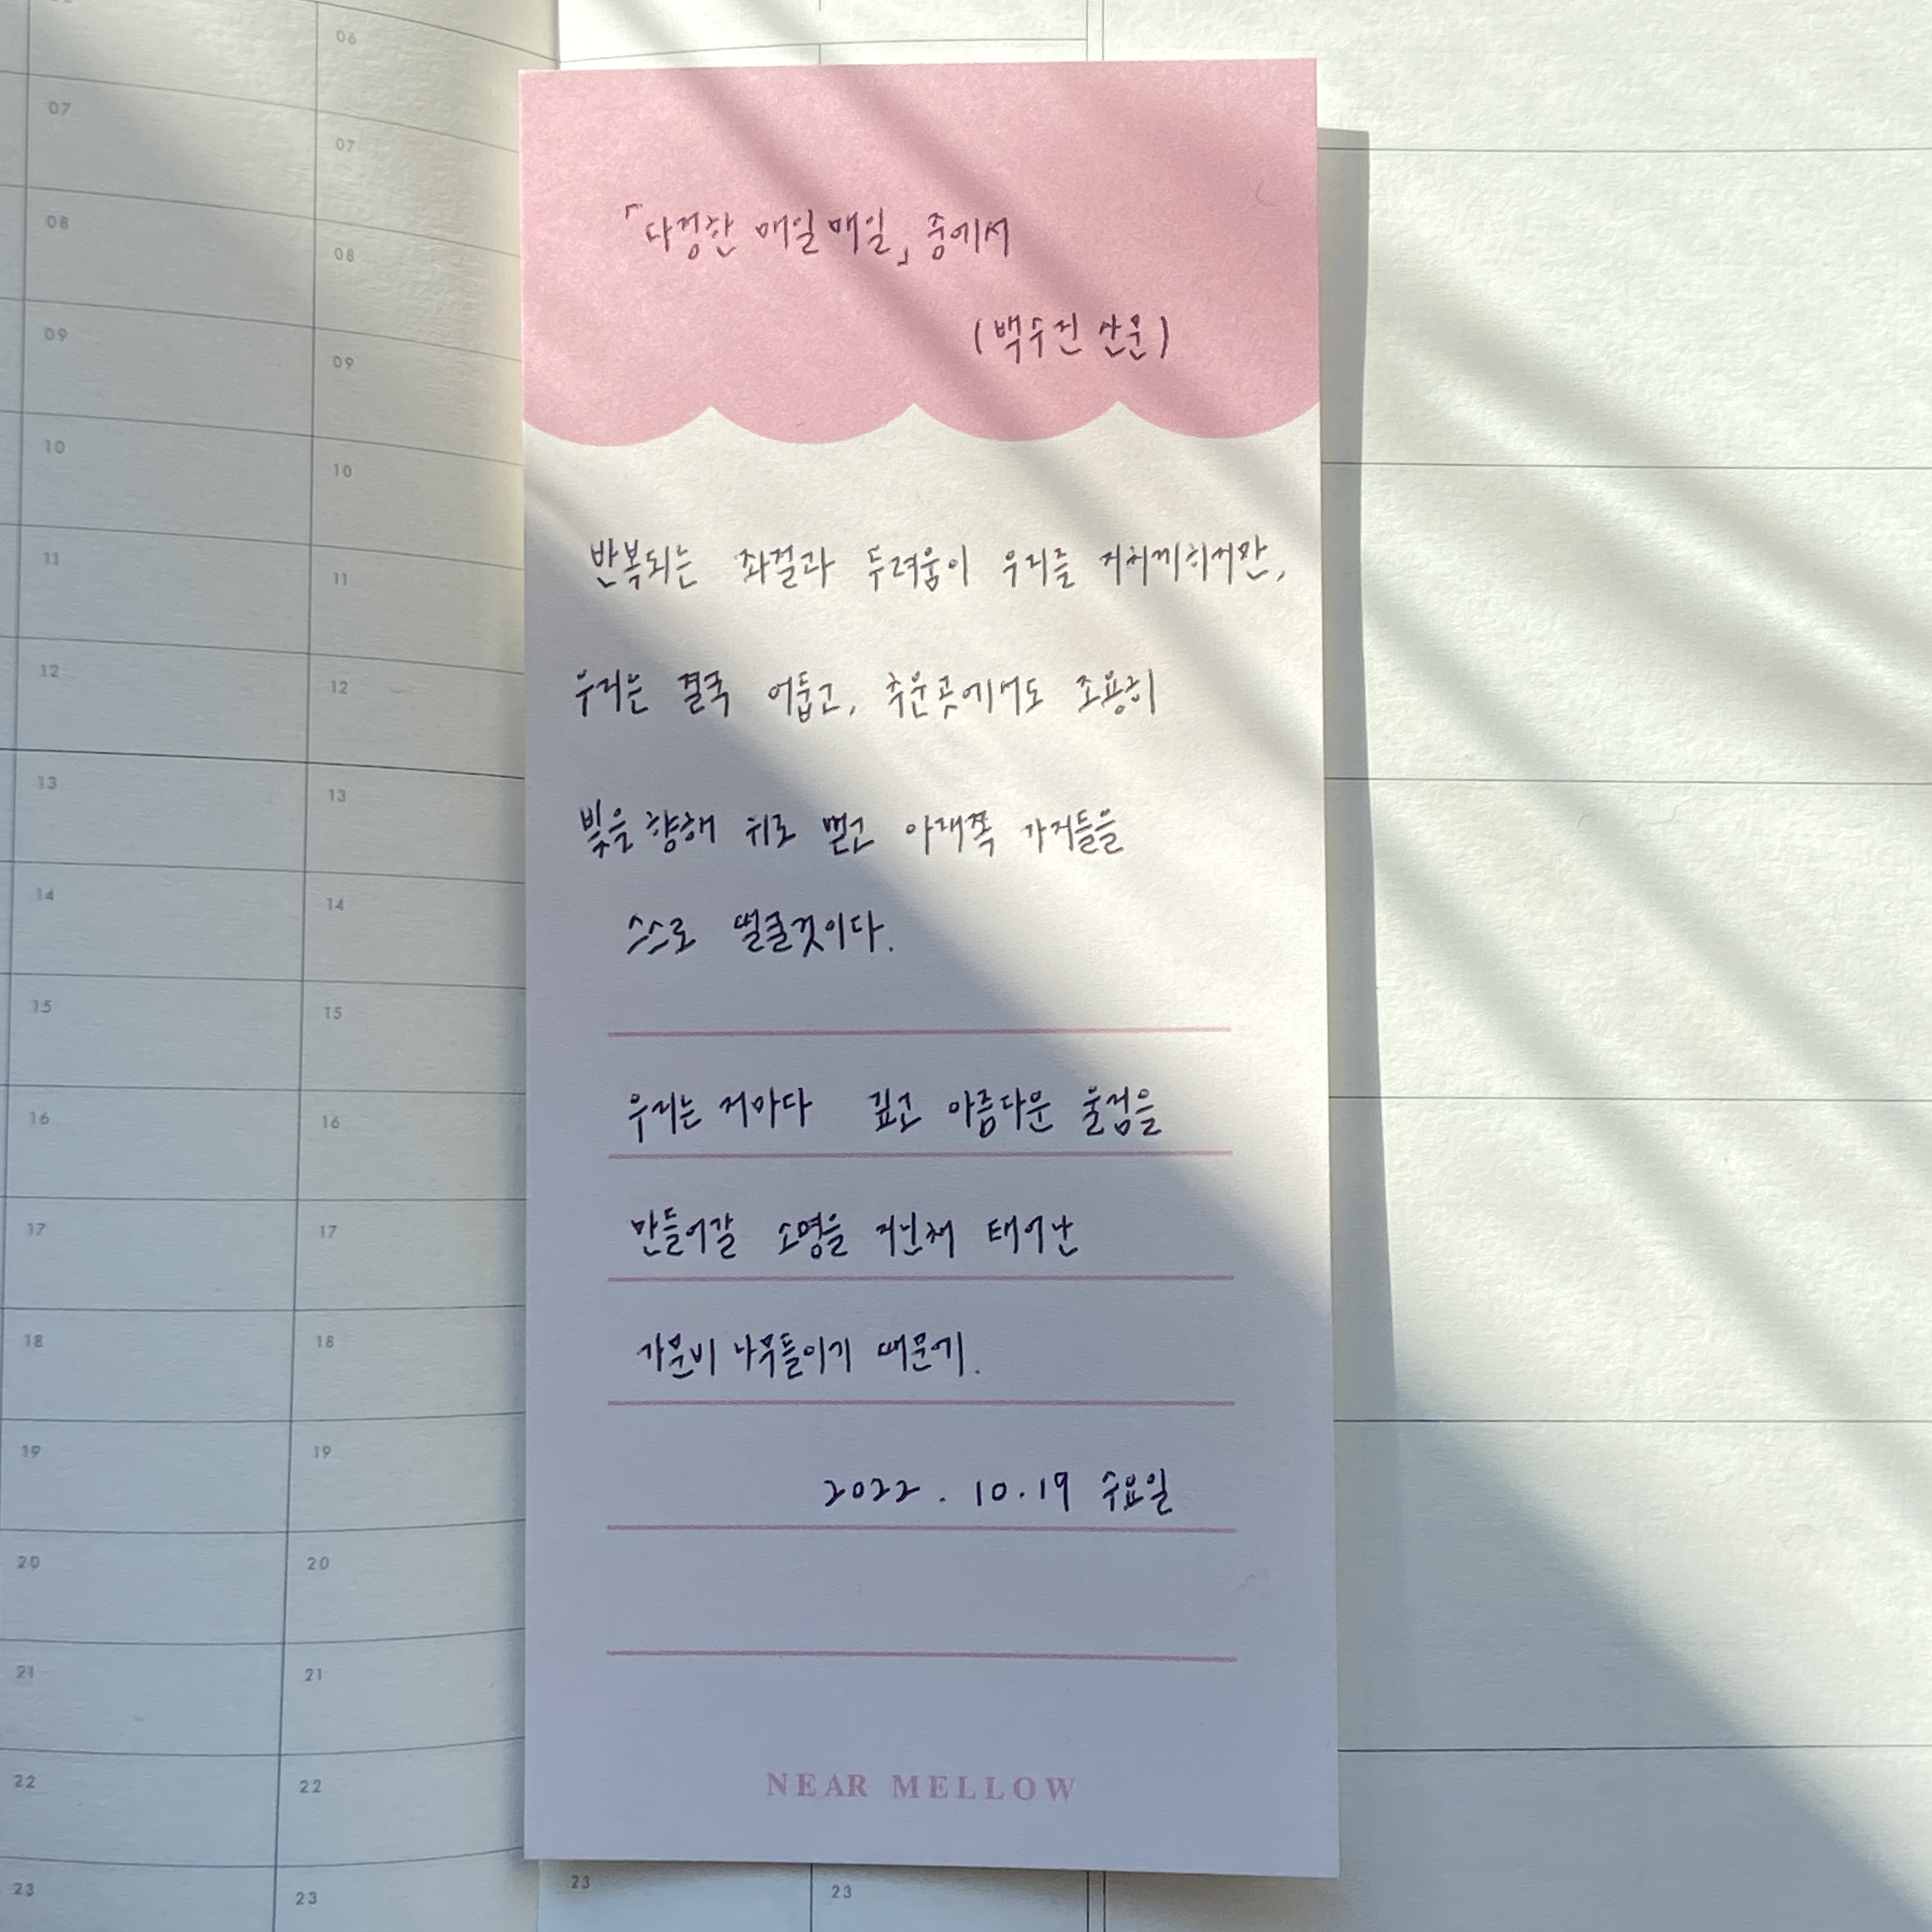 「다정한 매일매일」 중에서
(백수린 산문)
반복되는 좌절과 두려움이 우리를 지치게하지만,
우리는 결국 어둡고, 추운곳에서도 조용히
빛을 향해 위로 뻗고 아래쪽 가지들을
스스로 떨굴것이다.
우리는 저마다 깊고 아름다운 울림을
만들어갈 소명을 지닌채 태어난
가문비 나무들이기 때문에.
2022. 10.19 수요일
NEAR MELLOW
07
08
09
10
11
12
13
14
15
16
17
18
19
20
21
22
23
06
07
08
09
10
11
12
13
14
15
16
17
18
19
20
21
22
23
23
23